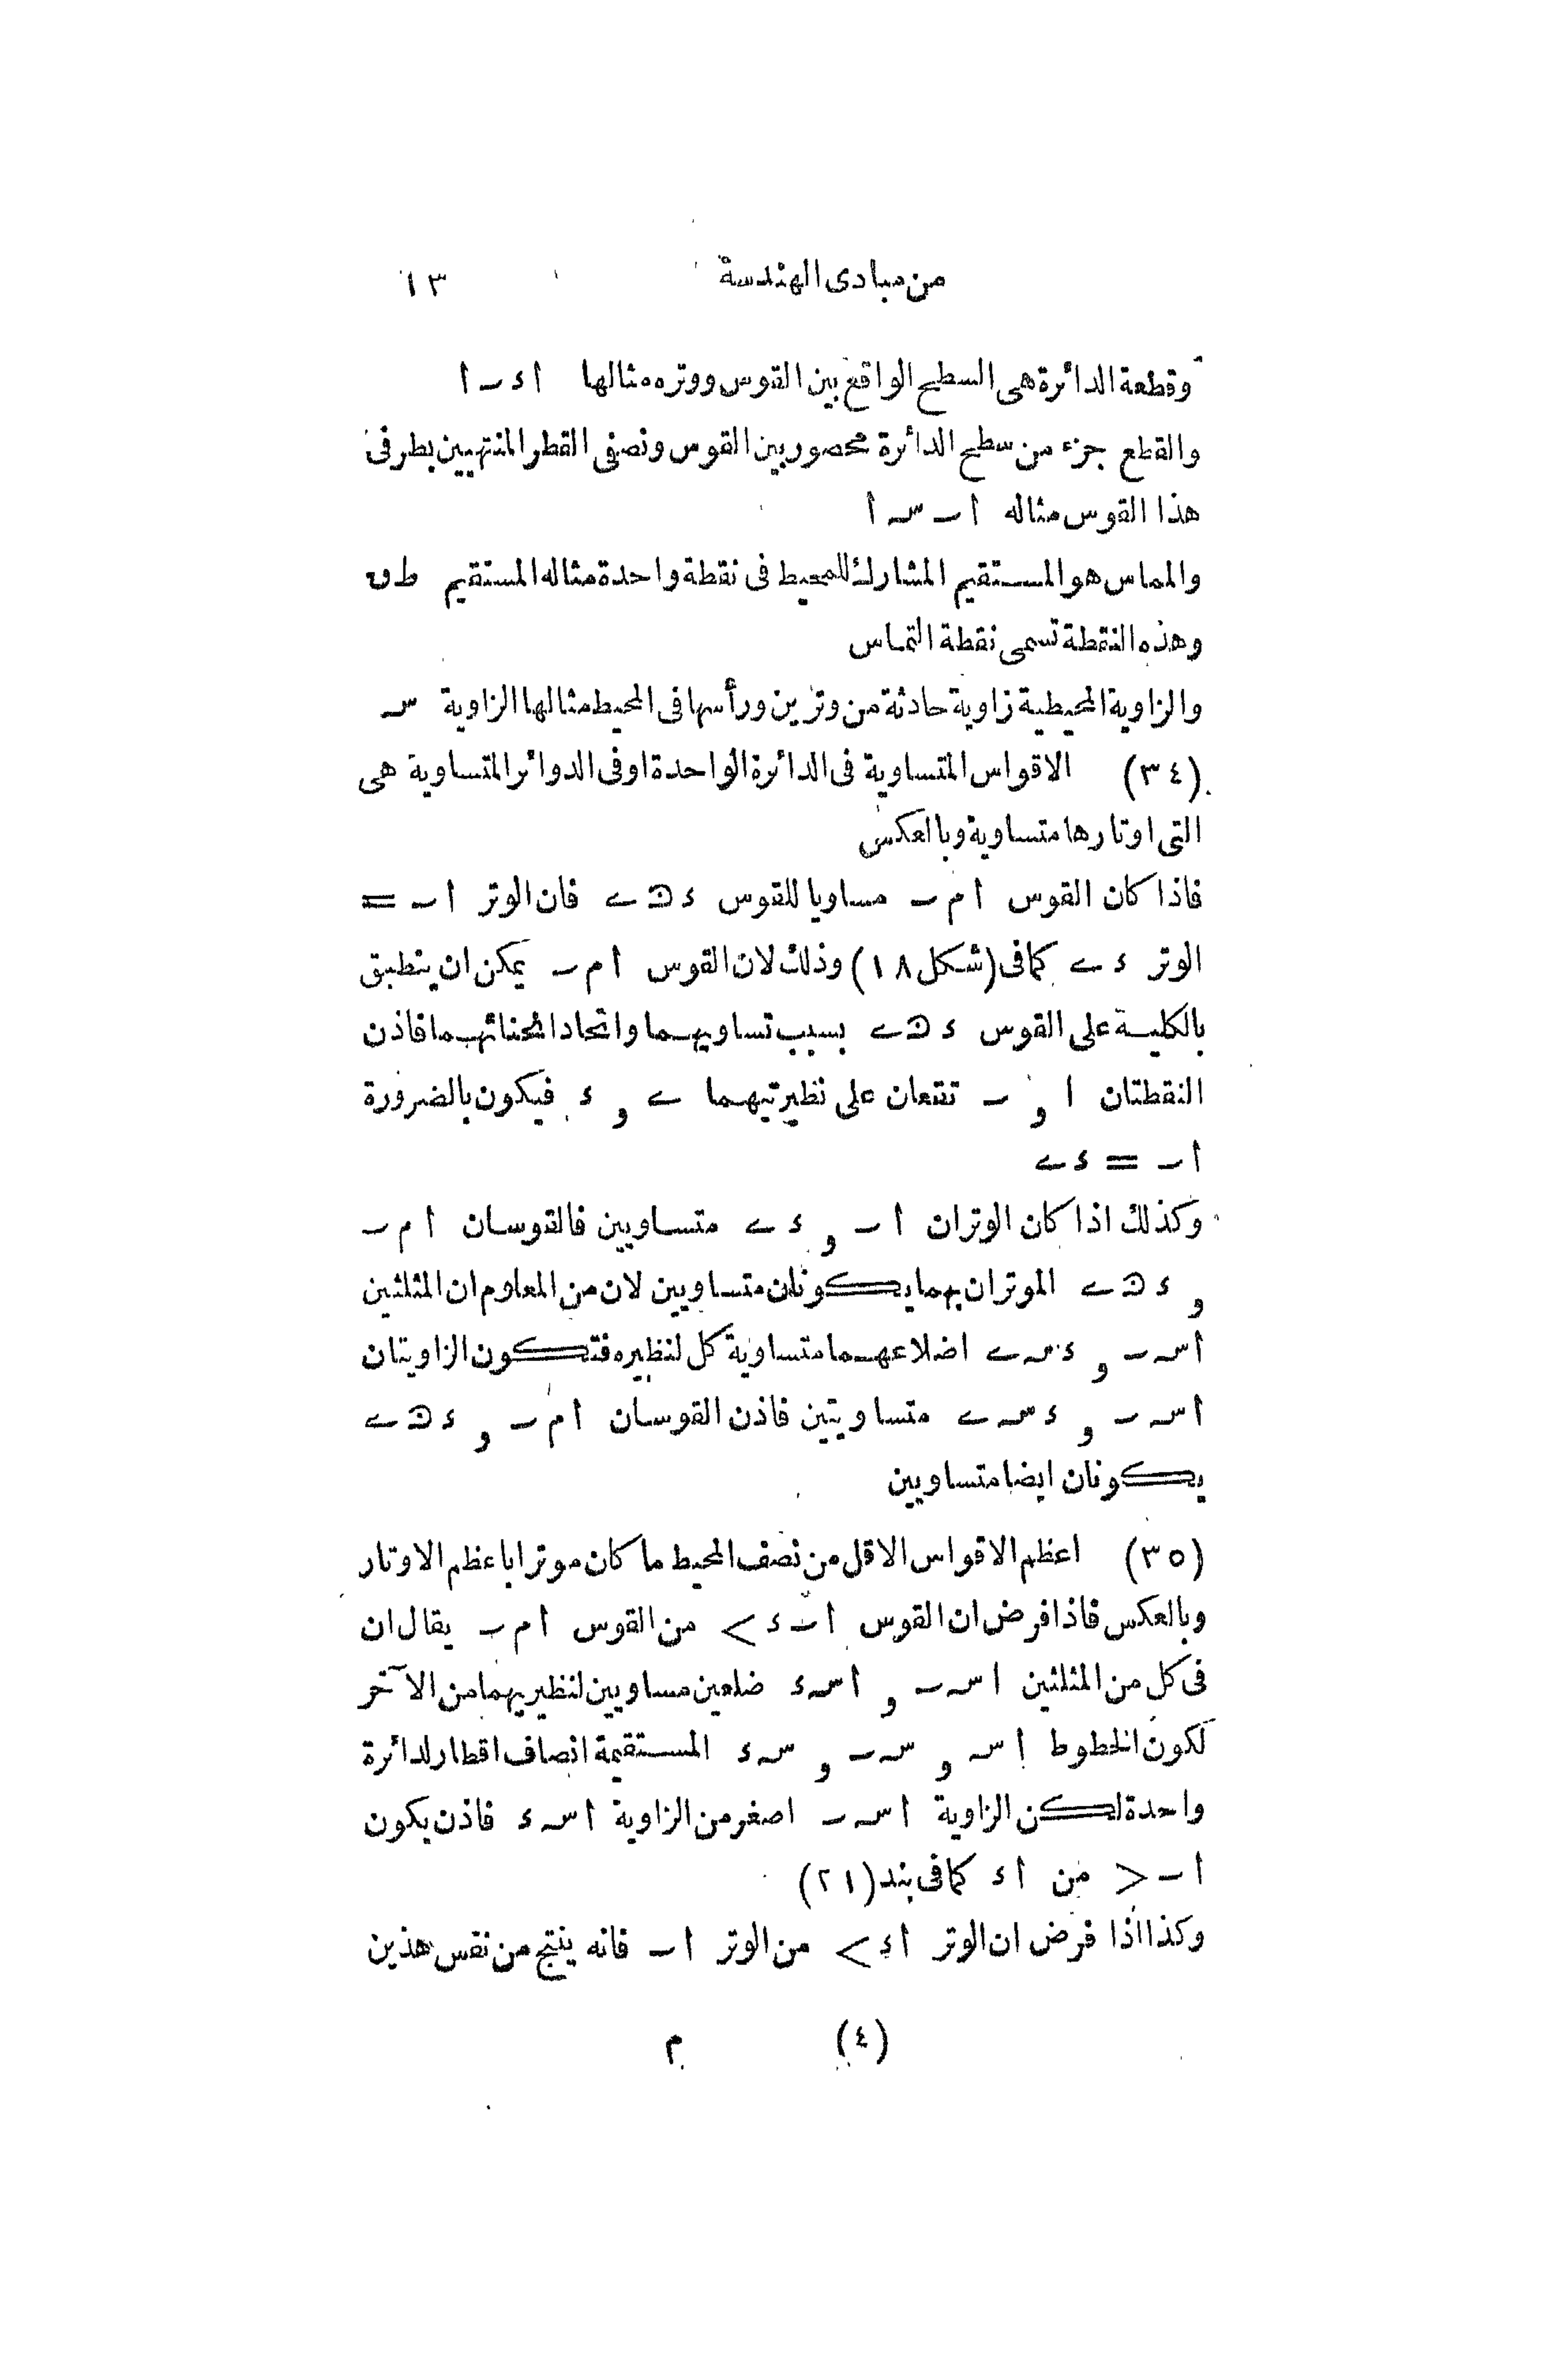 من مبادى الهندسة ١٣
وقطعة الدائرة هى السطح الواقع بين القوس ووتره مثالها ا ء ب ا
والقطع جزء من سطح الدائرة محصور بين القوس ونصفى القطر المنتهيين بطرفى
هذا القوس مثاله ا ب س ا
والمماس هو المستقيم المشارك للمحيط فى نقطة واحدة مثاله المستقيم ط ق
وهذه النقطة تسمى نقطة التماس
والزاوية المحيطية زاوية حادثة من وترين ورأسها فى المحيط مثالها الزاوية س
(٣٤) الاقواس المتساوية فى الدائرة الواحدة او فى الدوائر المتساوية هى
التى اوتارها متساوية وبالعكس
فاذا كان القوس ا م ب مساويا للقوس ء ك ے فان الوتر ا ب =
الوتر ء ے كما فى (شكل ١٨) وذلك لان القوس ا م ب يمكن ان ينطبق
بالكلية على القوس ء ك ے بسبب تساويهما واتحاد انحنائهما فاذن
النقطتان ا و ب تقعان على نظيرتيهما ے و ء فيكون بالضرورة
ا ب = ء ے
وكذلك اذا كان الوتران ا ب و ء ے متساويين فالقوسان ا م ب
و ء ك ے الموتران بهما يكونان متساويين لان من المعلوم ان المثلثين
ا س ب و ء س ے اضلاعهما متساوية كل لنظيره فتكون الزاويتان
ا س ب و ء س ے متساويتين فاذن القوسان ا م ب و ء ك ے
يكونان ايضا متساويين
(٣٥) اعظم الاقواس الاقل من نصف المحيط ما كان موترا باعظم الاوتار
وبالعكس فاذا فرض ان القوس ا ب ء > من القوس ا م ب يقال ان
فى كل من المثلثين ا س ب و ا س ء ضلعين مساويين لنظيريهما من الآخر
لكون الخطوط ا س و س ب و س ء المستقيمة انصاف اقطار لدائرة
واحدة لكن الزاوية ا س ب اصغر من الزاوية ا س ء فاذن يكون
ا ب < من ا ء كما فى بند (٢١)
وكذا اذا فرض ان الوتر ا ء > من الوتر ا ب فانه ينتج من نفس هذين
(٤) م